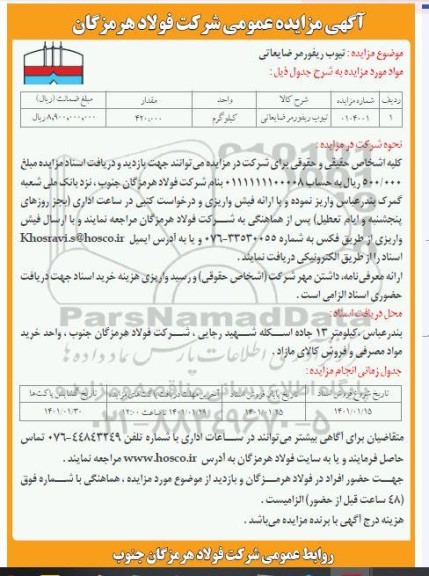 آگهی مزایده عمومی شرکت فولاد هرمزگان
موضوع مزایده : تیوب ریفورمر ضایعاتی
مواد مورد مزایده به شرح جدول ذیل :
ردیف شماره مزایده شرح کالا واحد مقدار مبلغ ضمانت (ریال)
۱ ۰۱-۴۰۰۱ تیوب ریفورمر ضایعاتی کیلوگرم ۴۲۰،۰۰۰ ۸،۹۰۰،۰۰۰،۰۰۰ ریال
نحوه شرکت در مزایده :
کلیه اشخاص حقیقی و حقوقی برای شرکت در مزایده می‌توانند جهت بازدید و دریافت اسناد مزایده مبلغ
۵۰۰/۰۰۰ ریال به حساب ۰۱۱۱۱۱۱۱۱۰۰۰۸ بنام شرکت فولاد هرمزگان جنوب ، نزد بانک ملی شعبه
گمرک بندرعباس واریز نموده و با ارائه فیش واریزی و درخواست کتبی در ساعات اداری (بجز روزهای
پنجشنبه و ایام تعطیل) پس از هماهنگی به شرکت فولاد هرمزگان مراجعه نمایند و با ارسال فیش
واریزی از طریق فکس به شماره ۳۳۵۳۰۰۵۵-۰۷۶ و یا به آدرس ایمیل Khosravi.s@hosco.ir
اسناد را از طریق الکترونیکی دریافت نمایند .
ارائه معرفی‌نامه، داشتن مهر شرکت (اشخاص حقوقی) و رسید واریزی هزینه خرید اسناد جهت دریافت
حضوری اسناد الزامی است .
محل دریافت اسناد :
بندرعباس ،کیلومتر ۱۳ جاده اسکله شهید رجایی ، شرکت فولاد هرمزگان جنوب ، واحد خرید
مواد مصرفی و فروش کالای مازاد .
جدول زمانی انجام مزایده :
تاریخ شروع فروش اسناد تاریخ پایان فروش اسناد آخرین مهلت دریافت پاکت‌های مزایده تاریخ گشایش پاکت‌ها
۱۴۰۱/۰۱/۱۵ ۱۴۰۱/۰۱/۲۵ ۱۴۰۱/۰۱/۲۹ تا ساعت ۱۲:۰۰ ۱۴۰۱/۰۱/۳۰
متقاضیان برای آگاهی بیشتر می‌توانند در ساعات اداری با شماره تلفن ۴۴۸۴۳۲۴۹-۰۷۶ تماس
حاصل فرمایند و یا به سایت فولاد هرمزگان به آدرس www.hosco.ir مراجعه نمایند .
جهت حضور افراد در فولاد هرمزگان و بازدید از موضوع مورد مزایده ، هماهنگی با شماره فوق
(۴۸ ساعت قبل از حضور) الزامیست .
هزینه درج آگهی با برنده مزایده می‌باشد .
روابط عمومی شرکت فولاد هرمزگان جنوب
ParsNamadData
۰۲۱-۸۸۳۴۹۶۷۰-۵